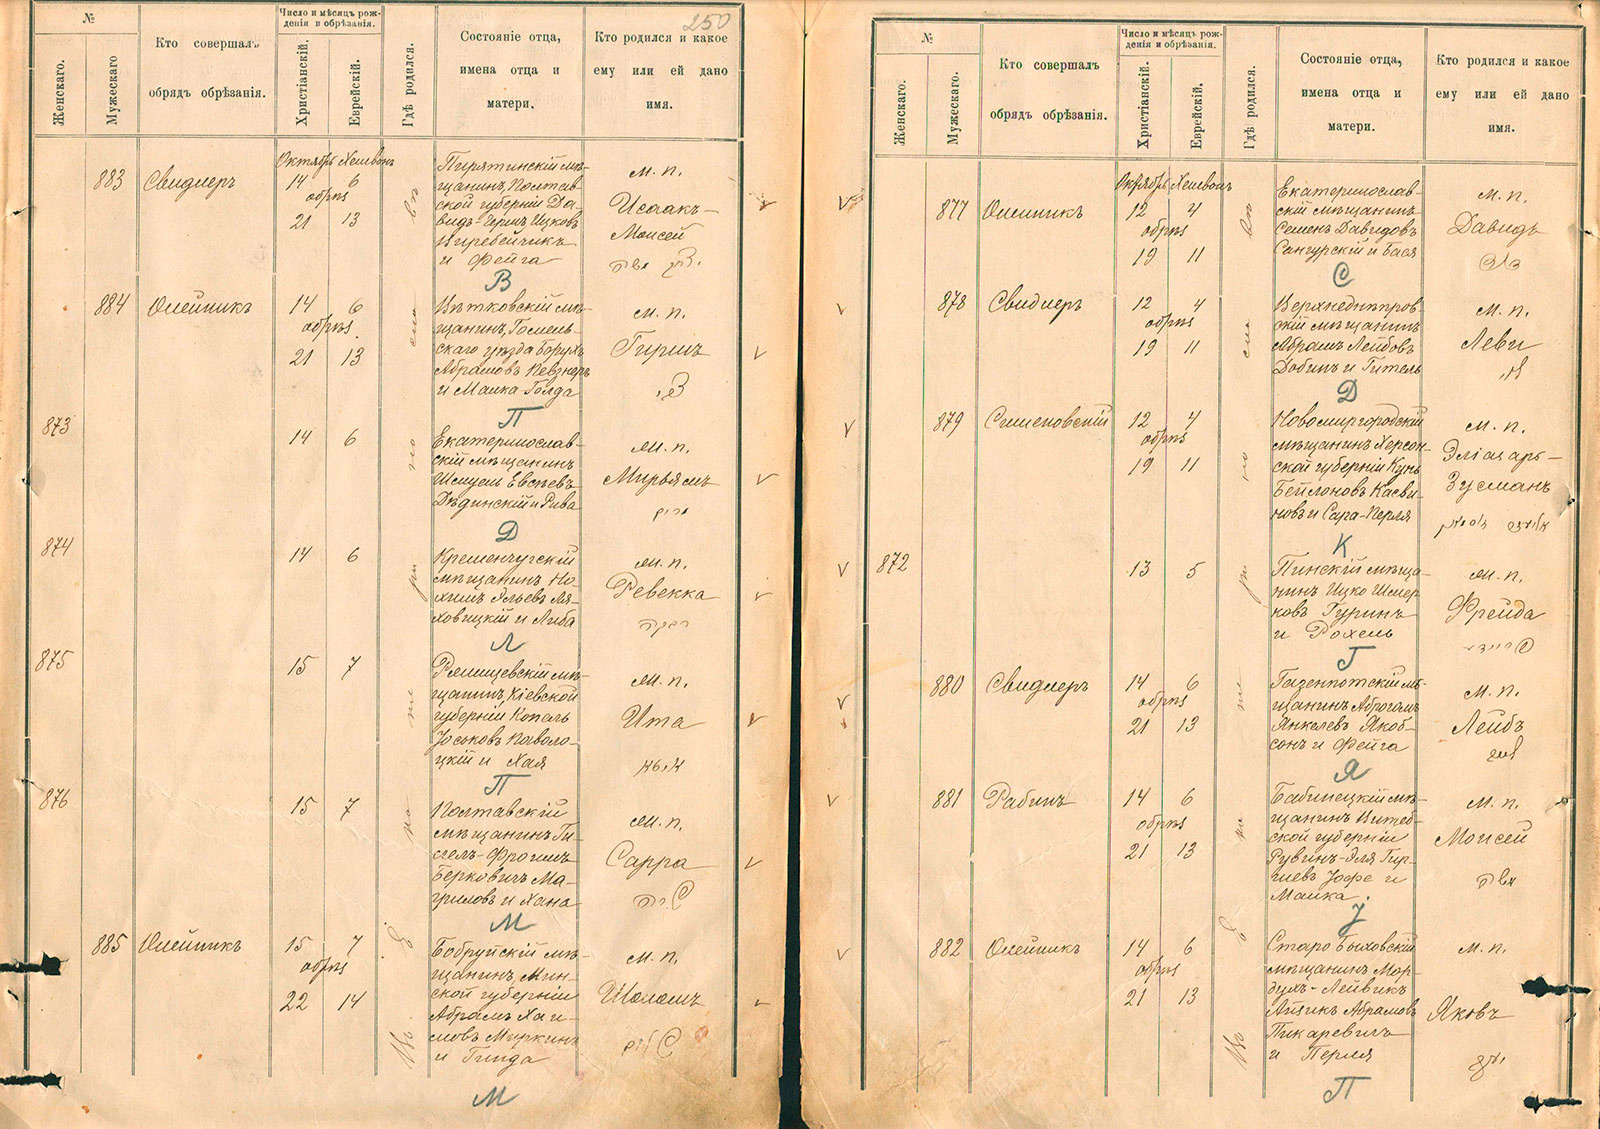 250
№
Женскаго.
Мужескаго
Кто совершалъ
обрядъ обрѣзанія.
Число и мѣсяцъ рож-
денія и обрѣзанія.
Христіанскій.
Еврейскій.
Гдѣ родился.
Состояніе отца,
имена отца и
матери.
Кто родился и какое
ему или ей дано
имя.
883
Свидлеръ
Октябрь Хешвонъ
14 6
обрѣз
21 13
Пирятинскій мѣ-
щанинъ, Полтав-
ской губерніи Да-
видъ-Гершъ Ицковъ
и Фейга
м. п.
Исаакъ-
Моисей
יצחק משה
В
884
Олейникъ
14 6
обрѣз.
21 13
Вѣтковскій мѣ-
щанинъ, Гомель-
скаго уѣзда Борухъ
Абрамовъ Певзнеръ
и Малка Голда
м. п.
Гиршъ
צבי
П
873
14 6
Екатеринослав-
скій мѣщанинъ
Шмуель Евсѣевъ
Дѣдинскій и Рива
м. п.
Мирьямъ
מרים
Д
874
14 6
Кременчугскій
мѣщанинъ Но-
химъ Эльевъ Ля-
ховицкій и Либа
м. п.
Ревекка
רבקה
Л
875
15 7
Ржищевскій мѣ-
щанинъ, Кіевской
губерніи Копель
Іоськовъ Паволо-
цкій и Хая
м. п.
Ита
איטא
П
876
15 7
Полтавскій
мѣщанинъ Ги-
лель-Фроимъ
Берковичъ Ма-
гриловъ и Хана
м. п.
Сарра
שרה
М
885
Олейникъ
15 7
обрѣз
22 14
Бобруйскій мѣ-
щанинъ, Мин-
ской губерніи
Абрамъ Хаи-
мовъ Миркинъ
и Гинда
м. п.
Шоломъ
שלום
М
№
Женскаго.
Мужескаго.
Кто совершалъ
обрядъ обрѣзанія.
Число и мѣсяцъ рож-
денія и обрѣзанія.
Христіанскій.
Еврейскій.
Гдѣ родился.
Состояніе отца,
имена отца и
матери.
Кто родился и какое
ему или ей дано
имя.
877
Олейникъ
Октябрь Хешвонъ
12 4
обрѣз
19 11
Екатеринослав-
скій мѣщанинъ
Семенъ Давидовъ
Сангурскій и Бася
м. п.
Давидъ
דוד
С
878
Свидлеръ
12 4
обрѣз
19 11
Верхнеднѣпров-
скій мѣщанинъ
Абрамъ Лейбовъ
Добинъ и Гитель
м. п.
Леви
לוי
Д
879
Семеновскій
12 4
обрѣз
19 11
Новомиргородскій
мѣщанинъ Херсон-
ской губерніи Кунъ
и Сара-Перля
м. п.
Эліазаръ-
Зусманъ
אליעזר זוסמאן
К
872
13 5
Пинскій мѣща-
нинъ Ицко Шмер-
ковъ Гуринъ
и Рохель
м. п.
Фрейда
פריידא
Г
880
Свидлеръ
14 6
обрѣз
21 13
Газенпотскій мѣ-
щанинъ Аброгамъ
Янкелевъ Якоб-
сонъ и Фейга
м. п.
Лейбъ
לייב
Я
881
Рабинъ
14 6
обрѣз
21 13
Бабинецкій мѣ-
щанинъ Витеб-
ской губерніи
Рувинъ-Эля Гир-
шевъ Іофе и
Малка.
м. п.
Моисей
משה
У
882
Олейникъ
14 6
обрѣз
21 13
Старо Быховскій
мѣщанинъ Мор-
духъ-Лейвикъ
Айзикъ Абрамовъ
Пикаревичъ
и Перля
м. п.
Яковъ
יעקב
П